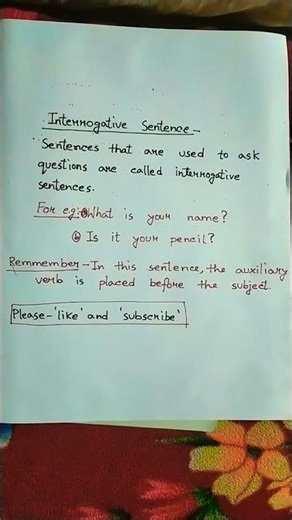 Interrogative Sentence -
Sentences that are used to ask
questions are called interrogative
sentences.
For eg:- ⓐ What is your name?
ⓑ Is it your pencil?
Remmember - In this sentence, the auxiliary
verb is placed before the subject.
Please - 'like' and 'subscribe'